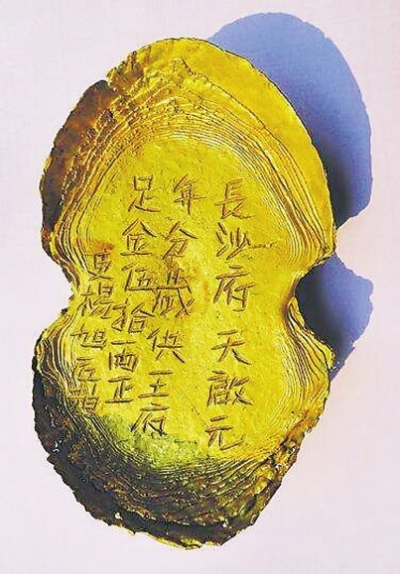 長沙府天啟元
年分歲供王府
足金伍拾兩正
吏楊旭